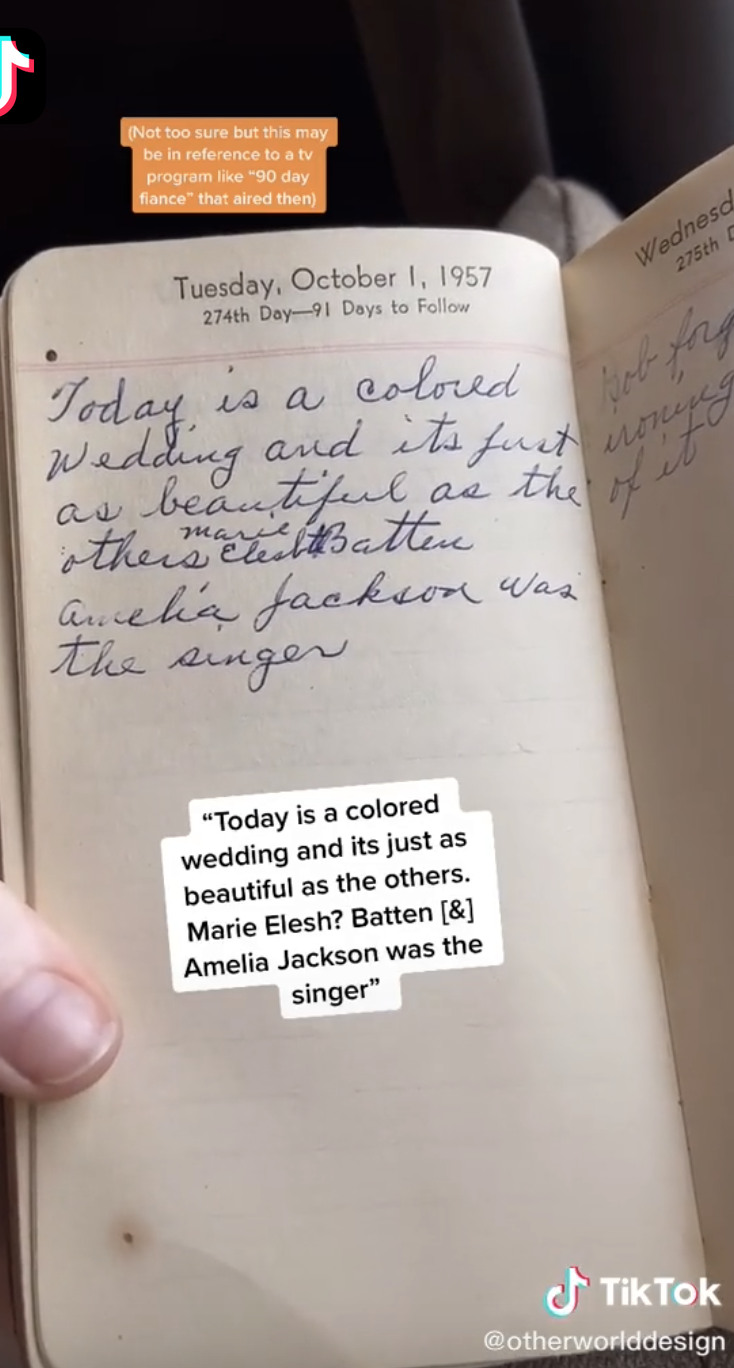 (Not too sure but this may
be in reference to a tv
program like “90 day
fiance” that aired then)
Tuesday, October 1, 1957
274th Day—91 Days to Follow
Today is a colored
Wedding and its just
as beautiful as the
others marie Batten
Amelia Jackson was
the singer
Wednesd
275th D
Bob forg
ironing
of it
“Today is a colored
wedding and its just as
beautiful as the others.
Marie Elesh? Batten [&]
Amelia Jackson was the
singer”
TikTok
@otherworlddesign